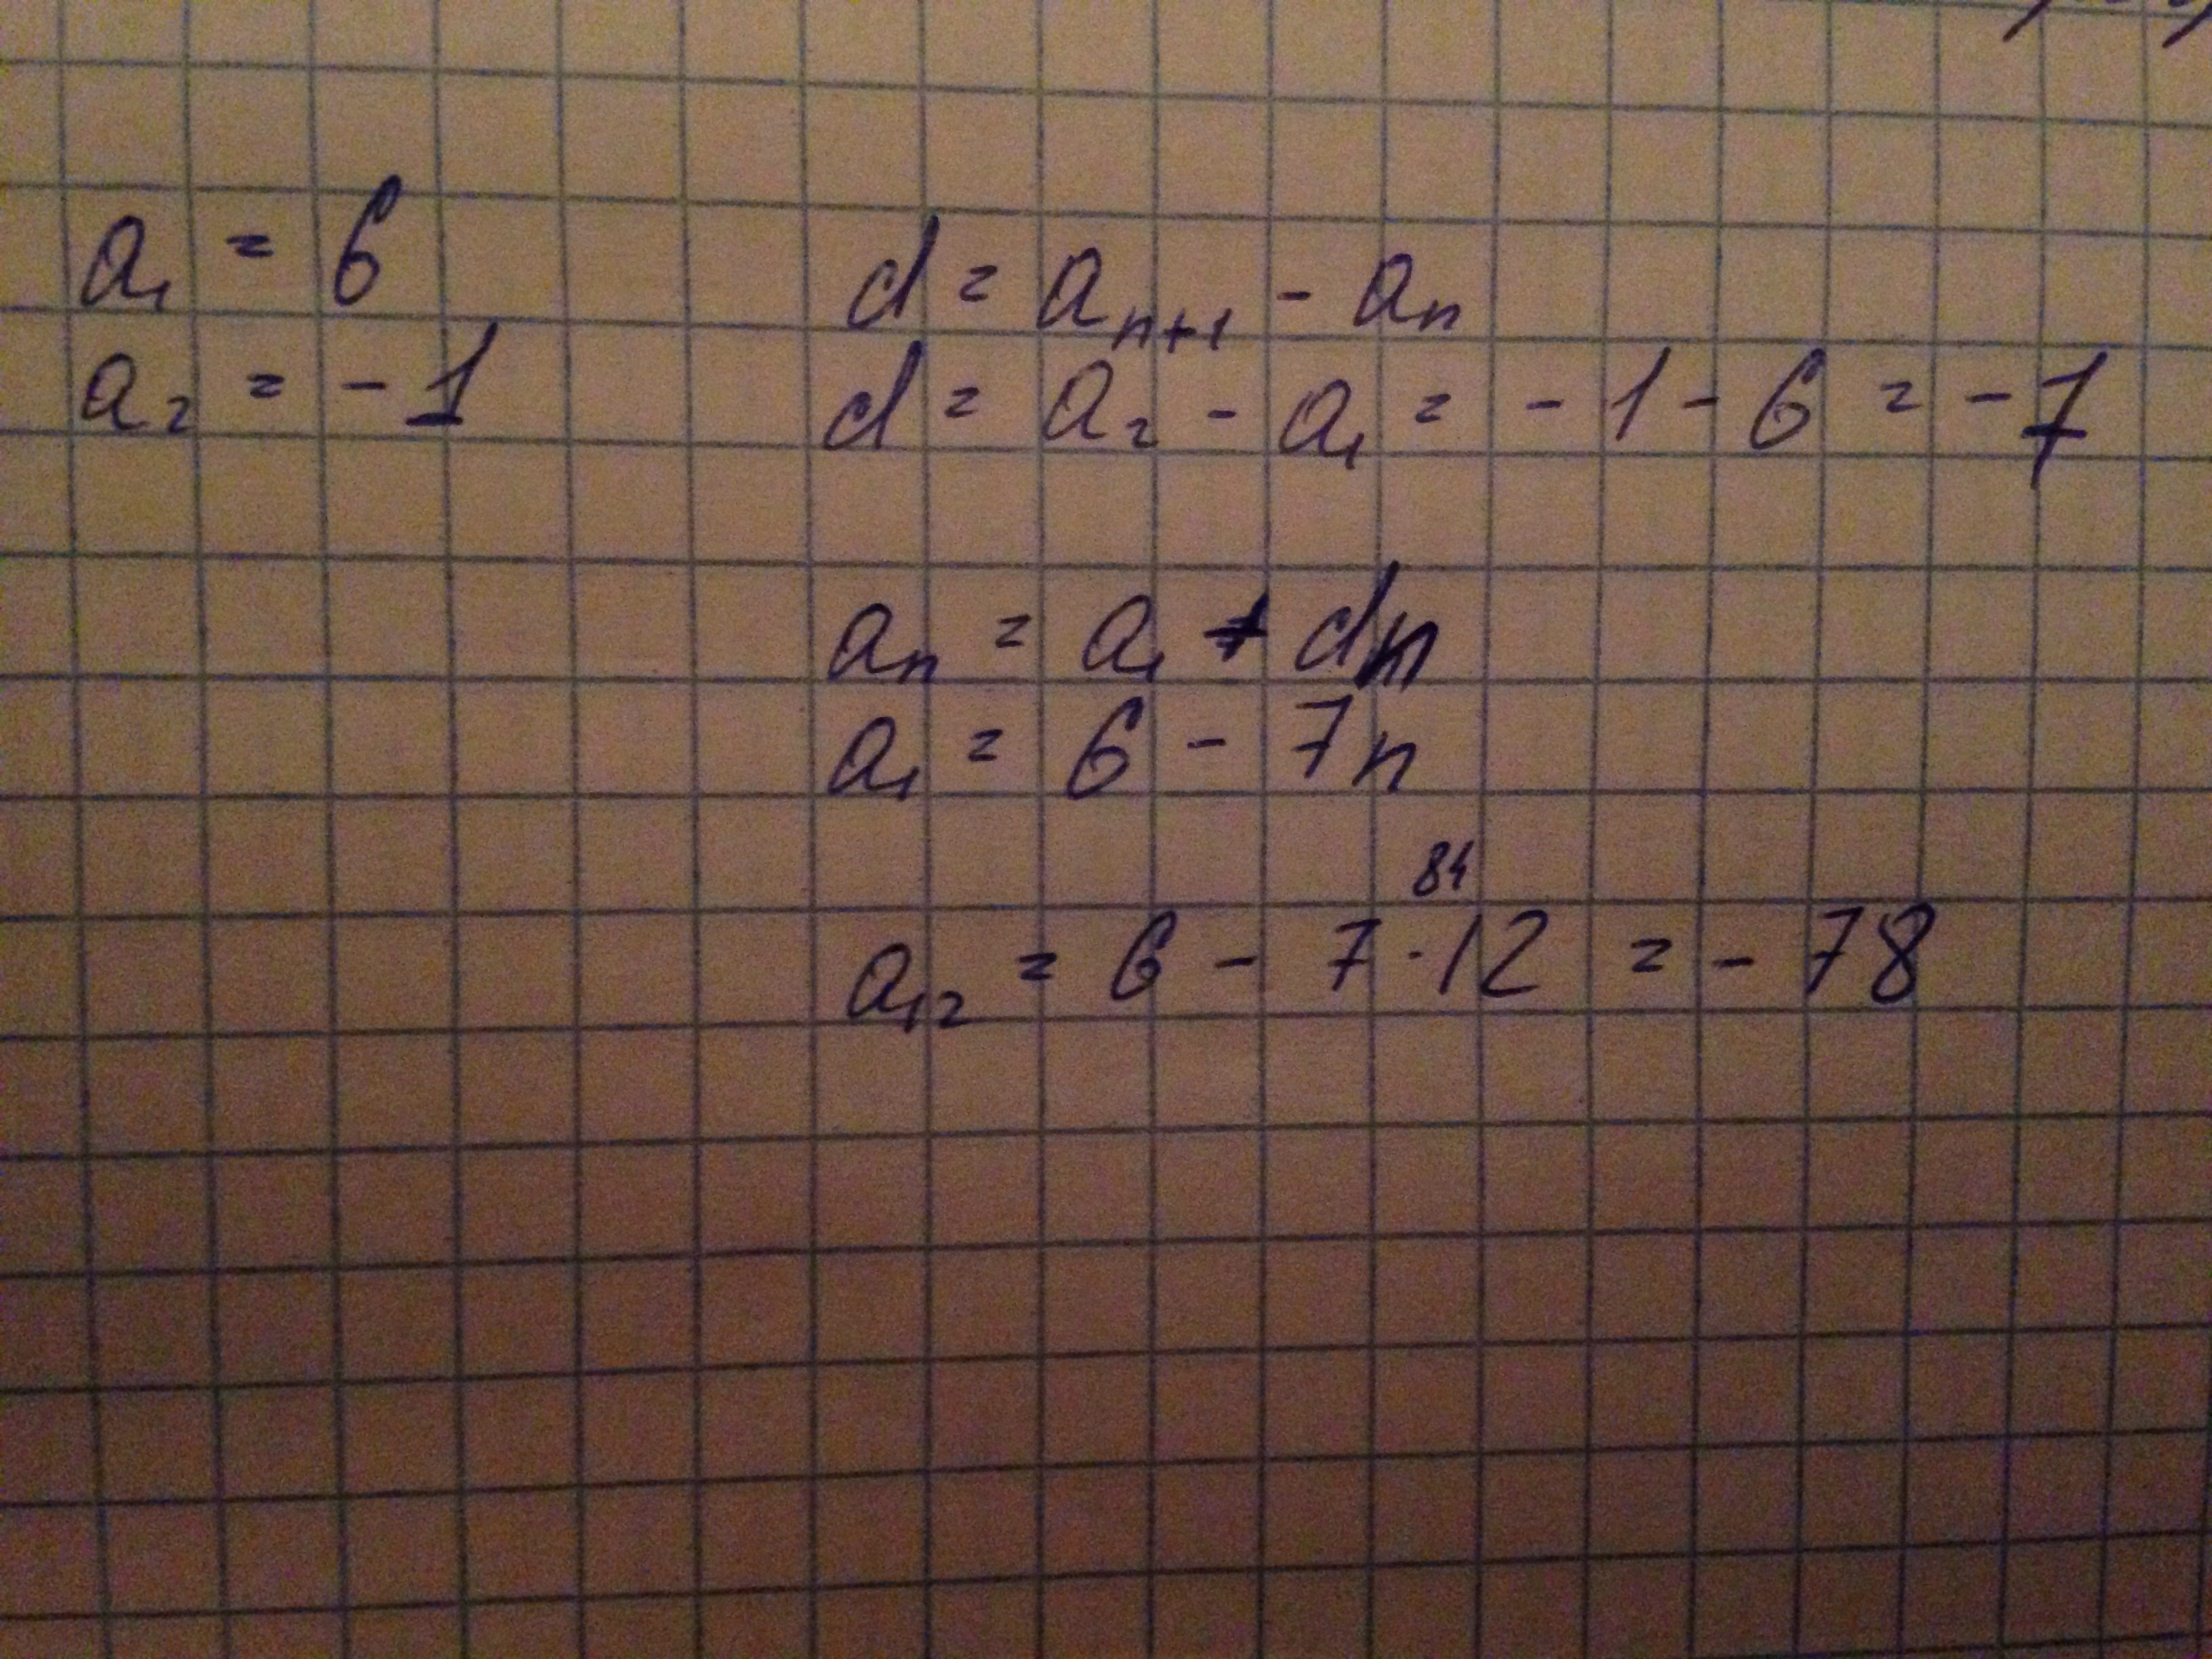 a₁ = 6
a₂ = - 1
d = aₙ₊₁ - aₙ
d = a₂ - a₁ = - 1 - 6 = - 7
aₙ = a₁ + dn
a₁ = 6 - 7n
84
a₁₂ = 6 - 7 · 12 = - 78